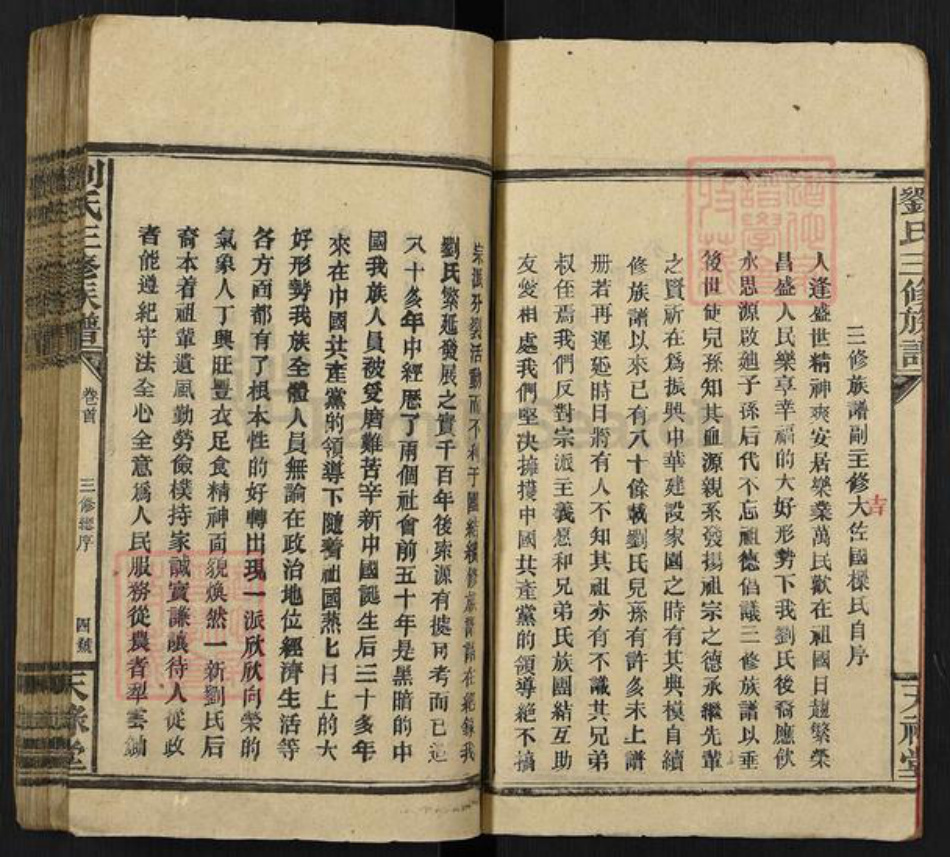 劉氏三修族譜
三修族譜副主修大佐國樑氏自序
吉
人逢盛世精神爽安居樂業萬民歡在祖國日趨繁榮
昌盛人民樂享幸福的大好形勢下我劉氏後裔應飲
水思源啟廸子孫后代不忘祖德倡議三修族譜以垂
後世使兒孫知其血源親系發揚祖宗之德承繼先輩
之賢祈在爲振興中華建設家園之時有其典模自續
修族譜以來已有八十餘載劉氏兒孫有許多未上譜
册若再遲延時日將有人不知其祖亦有不識其兄弟
叔侄焉我們反對宗派主義愿和兄弟氏族團結互助
友愛相處我們堅决擁護中國共產黨的領導絕不搞
天祿堂
宗派分裂活動而不利于團結續修族
劉氏繁延發展之實千百年後索源有據可考而已過
八十多年中經歷了兩個社會前五十年是黑暗的中
國我族人員被受磨難苦辛新中國誕生后三十多年
來在中國共產黨的領導下隨着祖國蒸七日上的大
好形勢我族全體人員無論在政治地位經濟生活等
各方面都有了根本性的好轉出現一派欣欣向榮的
氣象人丁興旺豐衣足食精神面貌煥然一新劉氏后
裔本着祖輩遺風勤勞儉樸持家誠實謙讓待人從政
者能遵紀守法全心全意爲人民服務從農者犁雲鋤
劉氏三修族譜
卷首
三修總序
四號
天祿堂